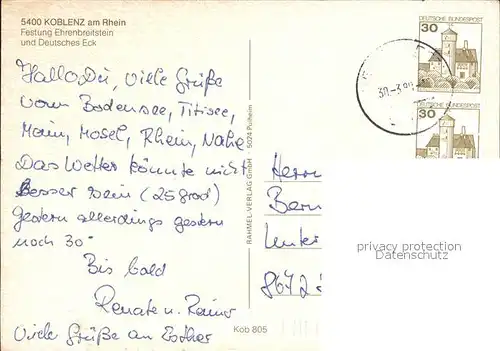 5400 KOBLENZ am Rhein
Festung Ehrenbreitstein
und Deutsches Eck
Hallo Du, viele Grüße
vom Bodensee, Titisee,
Main, Mosel, Rhein, Nahe
Das Wetter könnte nicht
besser sein (25 grad)
gestern allerdings gestern
noch 30
Bis bald
Renate u. Rainer
Viele Grüße an Esther
Kob 805
RAHMEL-VERLAG GmbH 5024 Pulheim
DEUTSCHE BUNDESPOST
30
DEUTSCHE BUNDESPOST
30
Herrn
Bern
Unter
8672
privacy protection
Datenschutz